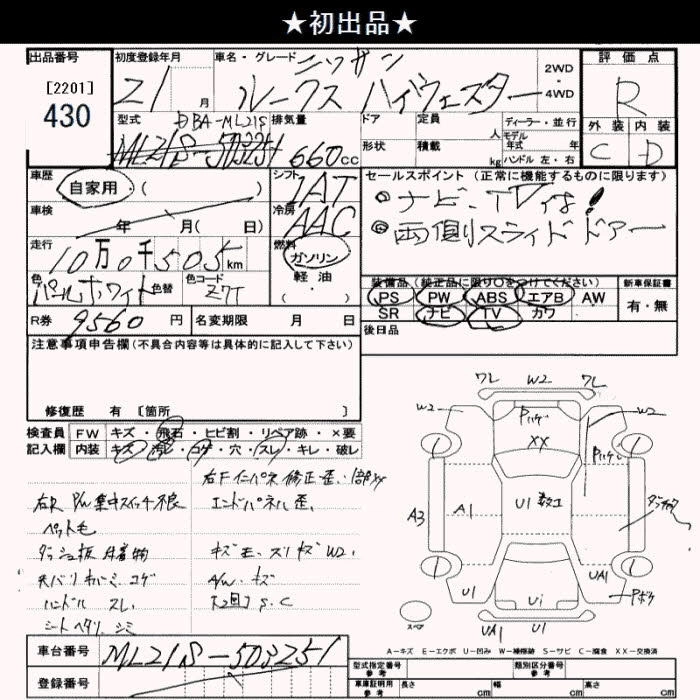 ★初出品★
出品番号
[2201]
430
初度登録年月
21 月
車名・グレード
ニッサン
ルークス ハイウェスター
2WD
・
4WD
評価点
R
外装 内装
C D
型式
DBA-ML21S
ML21S-503251
排気量
660cc
ドア
定員 人
形状
積載 kg
ディーラー・並行
モデル年式 年
ハンドル 左・右
車歴
自家用・( )
シフト
IAT
車検
年 月( 日)
冷房
AAC
セールスポイント(正常に機能するものに限ります)
◎ナビ、TVは!
◎両側スライドドアー
走行
10万0千505km
燃料
ガソリン
軽・油
( ・ )
色
パールホワイト
色替
色コード
Z7T
装備品(純正品に限り○をつけてください)
PS PW ABS エアB AW
SR ナビ TV カワ
新車保証書
有・無
R券
9560円
名変期限 月 日
後日品
注意事項申告欄(不具合内容等は具体的に記入して下さい)
修復歴 有 [箇所 ]
検査員
記入欄
FW キズ・飛石・ヒビ割・リペア跡・×要
内装 キズ・汚レ・コゲ・穴・スレ・キレ・破レ
右Fインパネ修正歪、1部XX
右R P/W集中スイッチ不良
エンドパネル歪、
ペット毛
ダッシュ板 付着物
キズ エ、スリキズ W2、
天バリ キバミ、コゲ
A/W、キズ
ハンドル スレ、
S.C
シートヘタリ、シミ
ワレ W2 ワレ
W2
Pハゲ
XX
W2
Pハゲ
A3
A1
U1
U1
U1
UA1
Pボケ
スペア
UA1
U1
A-キズ E-エクボ U-凹み W-補修跡 S-サビ C-腐食 XX-交換済
車台番号
ML21S-503251
登録番号
型式指定番号
参考
類別区分番号
参考
車庫証明用
参考
長さ cm
幅 cm
高さ cm